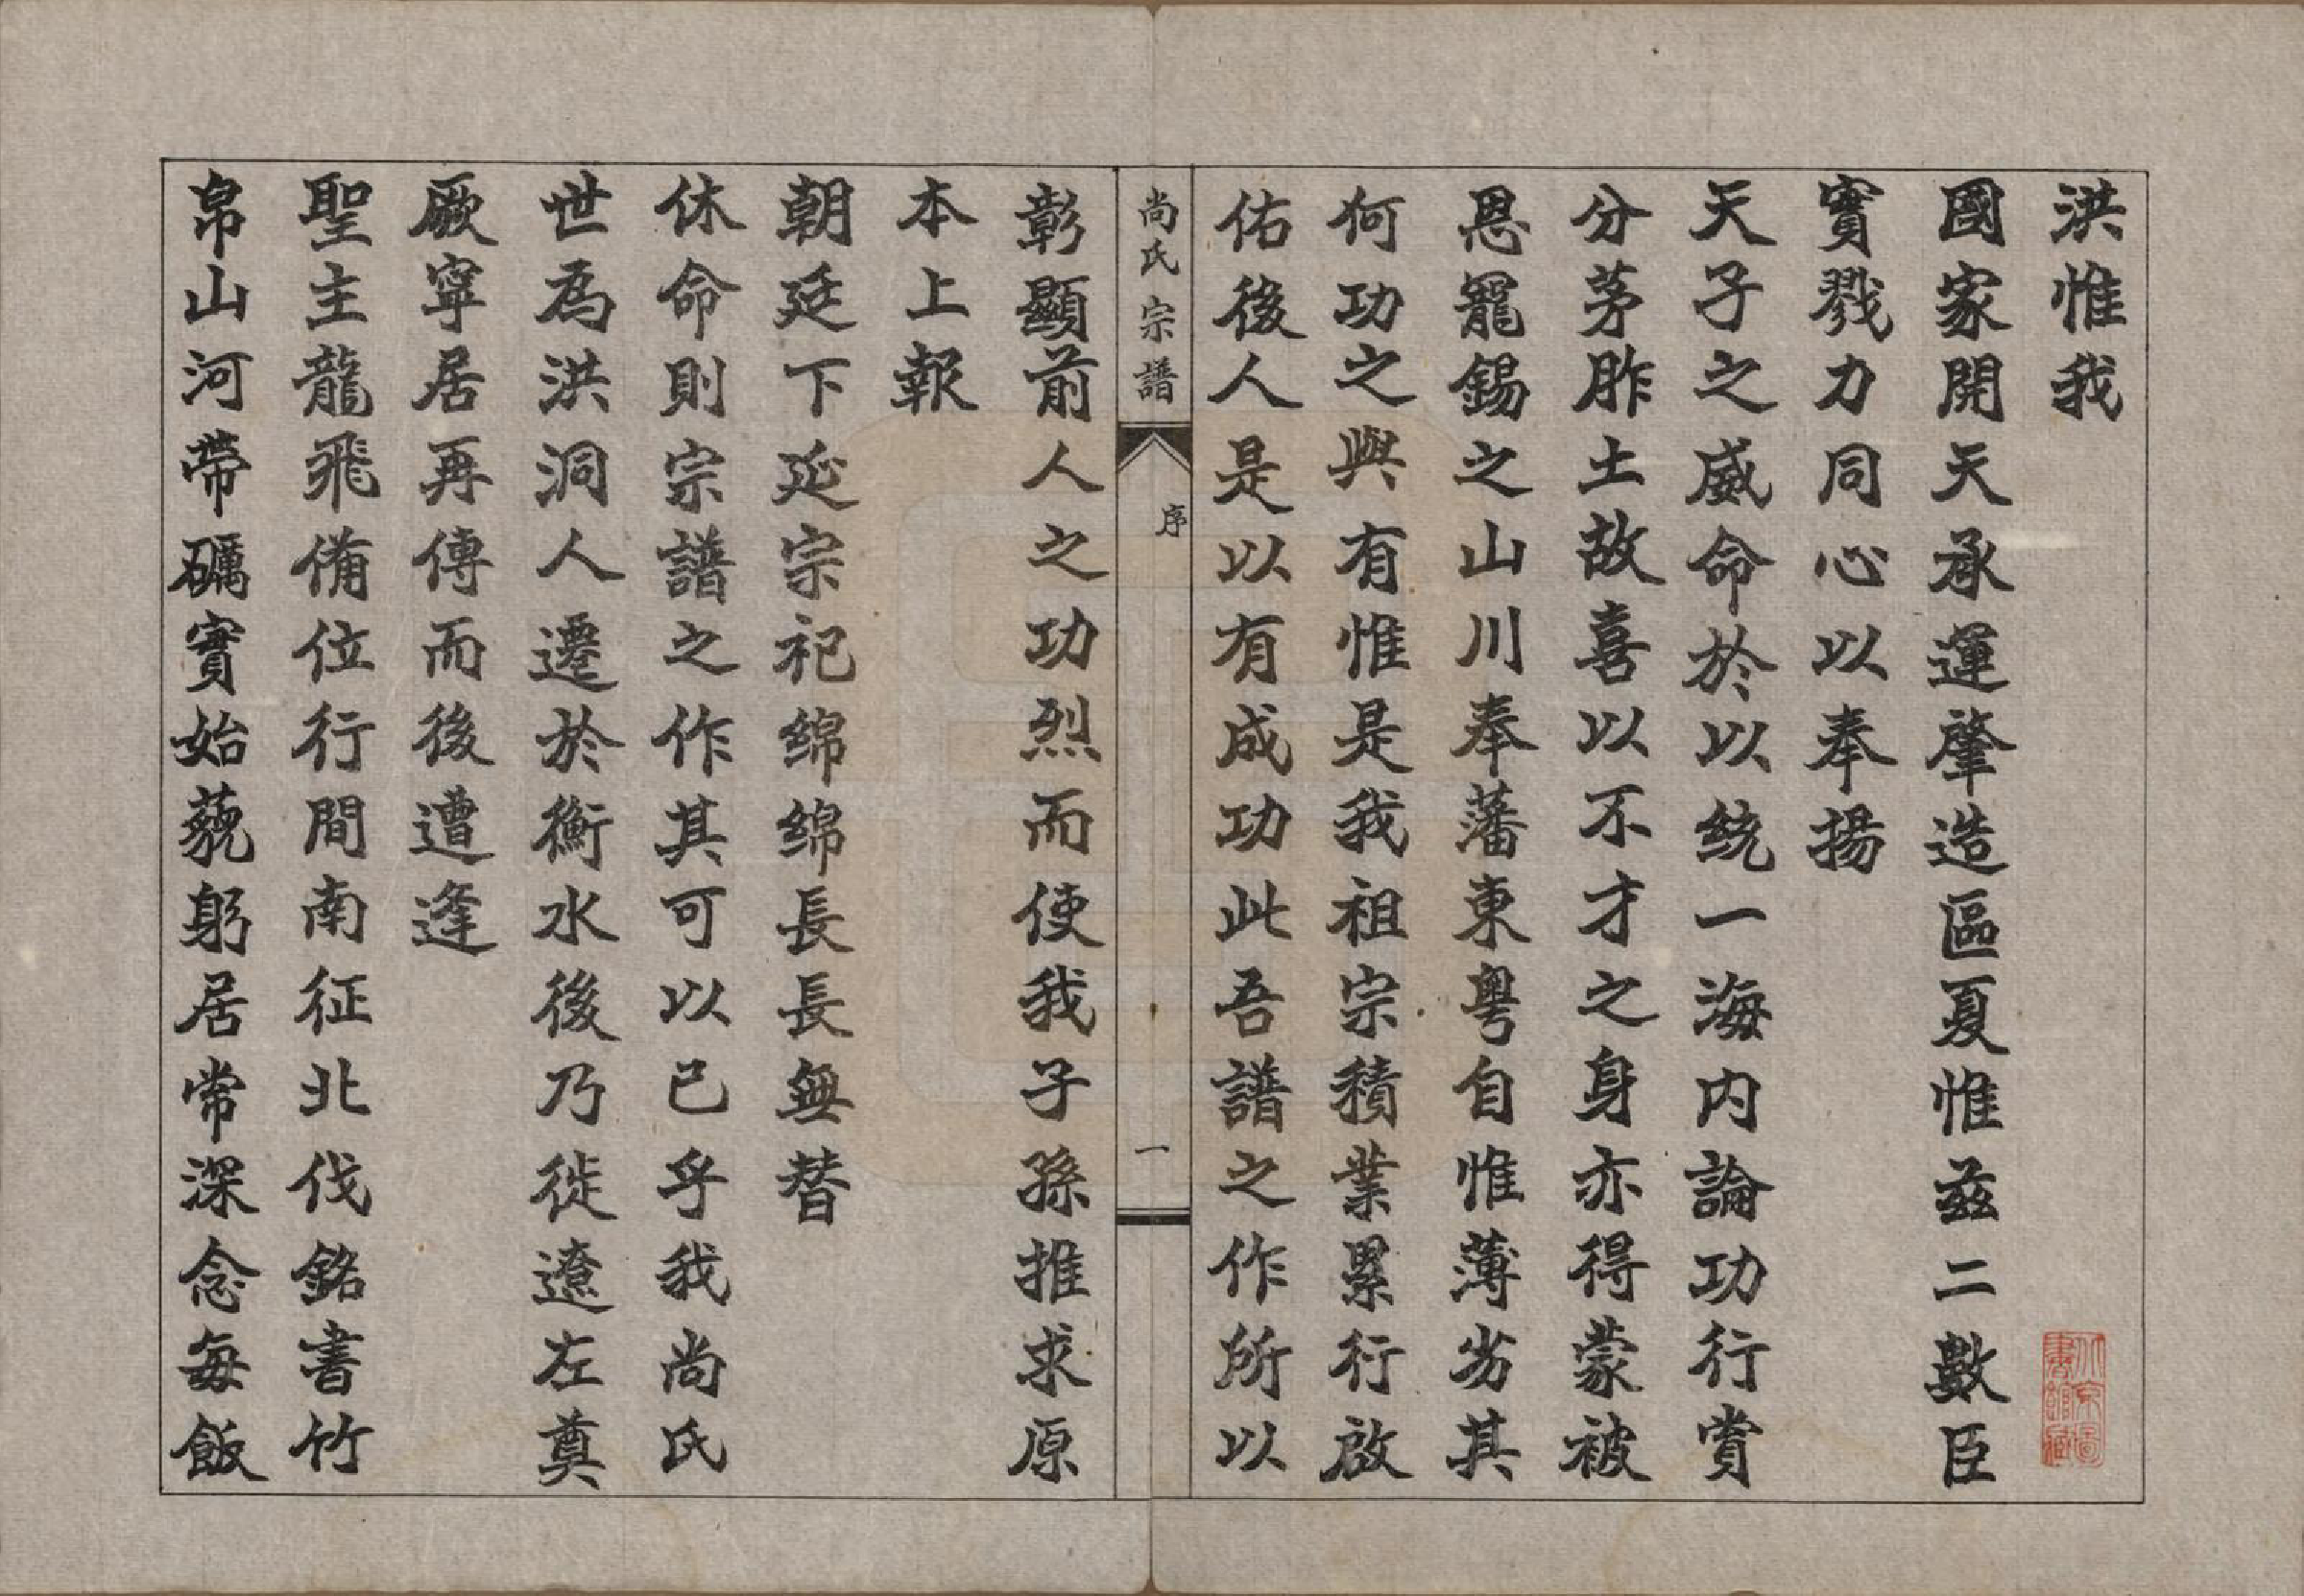 洪惟我
國家開天承運肇造區夏惟茲二數臣
實戮力同心以奉揚
天子之威命於以統一海內論功行賞
分茅胙土故喜以不才之身亦得蒙被
恩寵錫之山川奉藩東粵自惟薄劣其
何功之與有惟是我祖宗積業累行啟
佑後人是以有成功此吾譜之作所以
尚氏宗譜
序
一
彰顯前人之功烈而使我子孫推求原
本上報
朝廷下延宗祀綿綿長長無替
休命則宗譜之作其可以已乎我尚氏
世為洪洞人遷於衡水後乃徙遼左奠
厥寧居再傳而後遭逢
聖主龍飛備位行間南征北伐銘書竹
帛山河帶礪實始藐躬居常深念每飯
北京圖書館藏